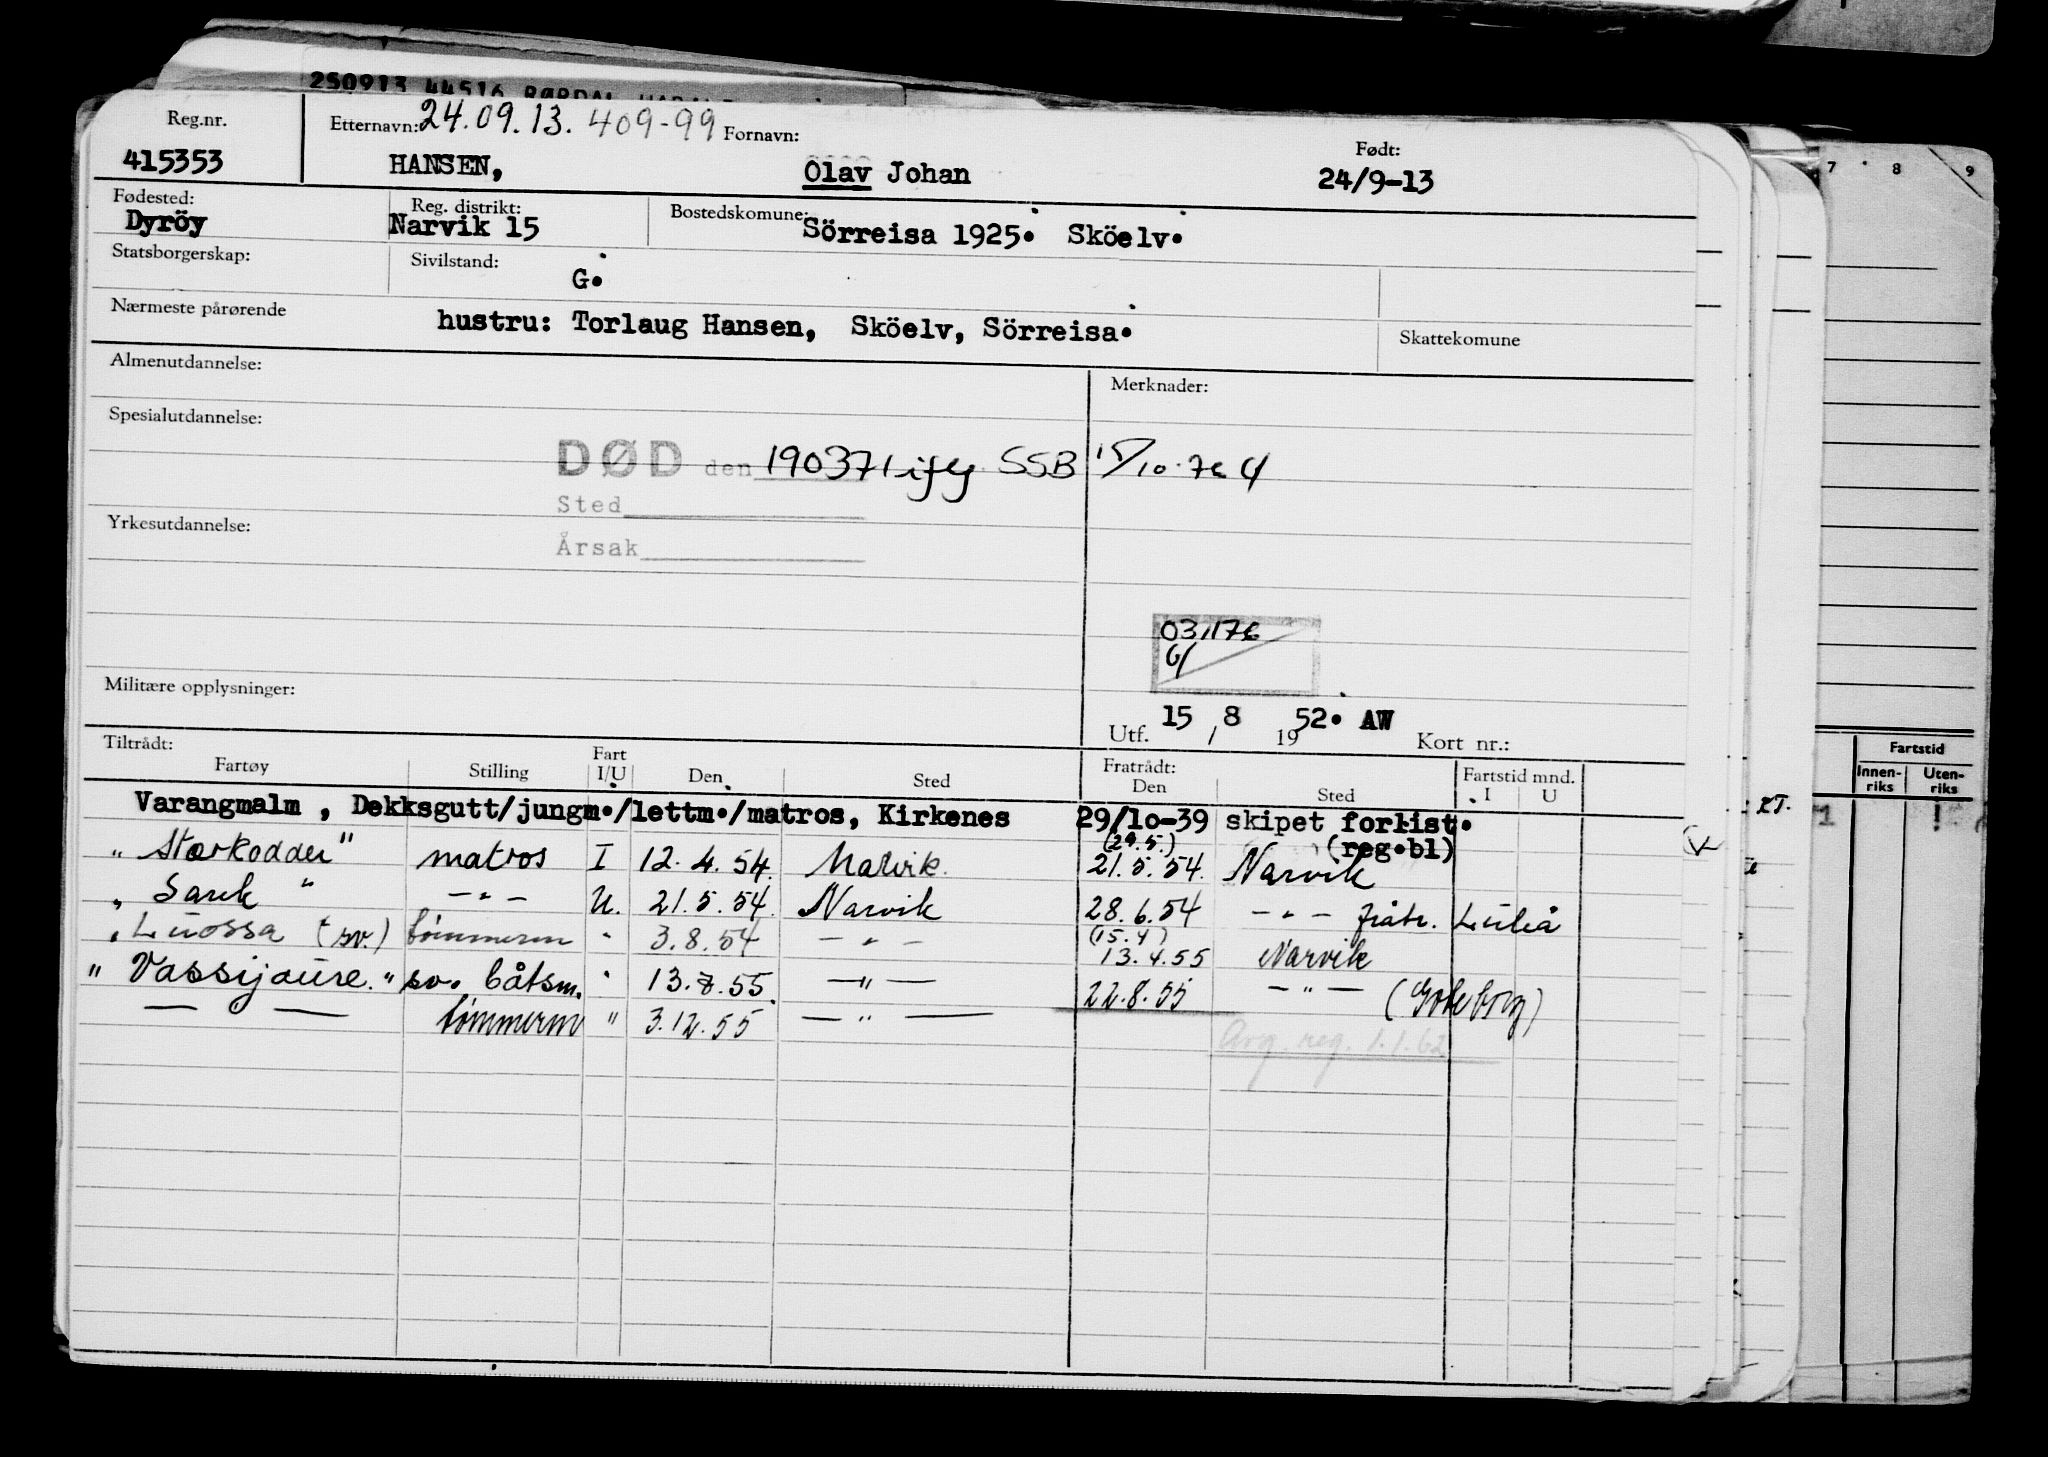 250913 44516 RØRDAL
Reg.nr. Etternavn: 24.09.13. 409-99 Fornavn: Født:
415353 HANSEN, Olav Johan 24/9-13
Fødested: Reg. distrikt: Bostedskomune:
Dyröy Narvik 15 Sörreisa 1925. Sköelv.
Statsborgerskap: Sivilstand:
G.
Nærmeste pårørende
hustru: Torlaug Hansen, Sköelv, Sörreisa.
Skattekomune
Almenutdannelse: Merknader:
Spesialutdannelse:
DØD den 190371 iflg SSB 15/10-76
Sted
Yrkesutdannelse:
Årsak
031176
Militære opplysninger:
Utf. 15 / 8 1952. AW Kort nr.:
Tiltrådt: Fratrådt: Fartstid mnd.
Fartøy Stilling Fart I/U Den Sted Den Sted I U
Varangmalm , Dekksgutt/jungm./lettm./matros, Kirkenes 29/10-39 skipet forlist.
(29.5.) (reg.bl)
" Størkodder" matros I 12.4.54. Malvik. 21.5.54. Narvik
" Sarek " -"- U. 21.5.54. Narvik 28.6.54 -"- fratr. Luleå
" Luossa (sv.) tømmerm " 3.8.54 -"- (15.4) 13.4.55 Narvik
" Vassijaure." sv. båtsm. " 13.8.55. -"- 22.8.55 -"- (Göteborg)
— — tømmerm " 3.12.55 -"-
Avg. reg. 1.1.62
7 8 9
Fartstid
Innen-riks Uten-riks